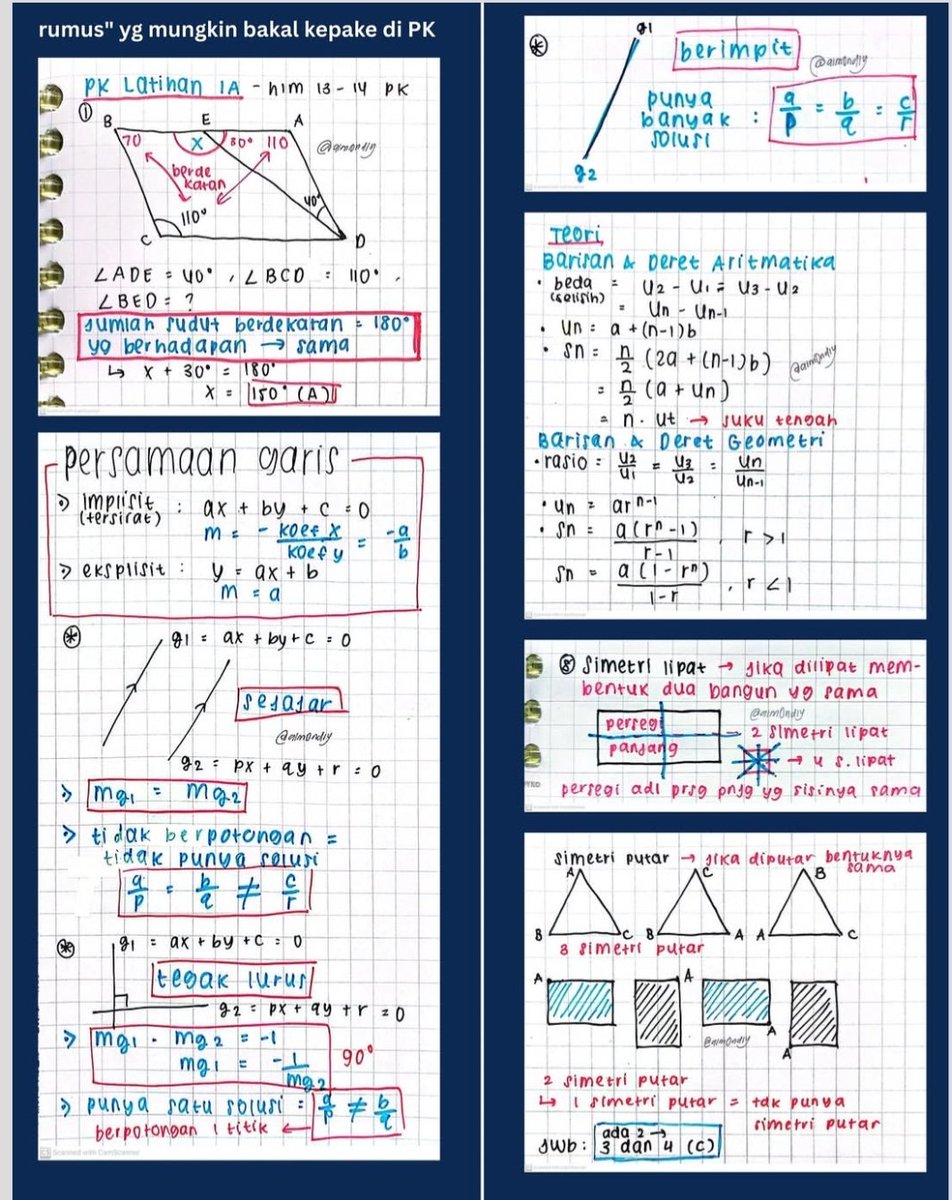 rumus" yg mungkin bakal kepake di PK
PK Latihan 1A - hlm 13-14 PK
①
B E A
70 X 30° 110
@aim0ndiy
berde
katan
40°
110°
C D
∠ADE = 40° , ∠BCD = 110° .
∠BED = ?
Jumlah sudut berdekatan = 180°
yg berhadapan → sama
↳ x + 30° = 180°
x = 150° (A)
persamaan garis
> Implisit : ax + by + c = 0
(tersirat)
m = - koef x / koef y = -a/b
> eksplisit : y = ax + b
m = a
* g1 = ax + by + c = 0
sejajar
@aim0ndiy
g2 = px + qy + r = 0
> mg1 = mg2
> tidak berpotongan =
tidak punya solusi
a/p = b/q ≠ c/r
* g1 = ax + by + c = 0
tegak lurus
g2 = px + qy + r = 0
> mg1 . mg2 = -1
mg1 = -1/mg2
90°
> punya satu solusi = a/p ≠ b/q
berpotongan 1 titik ←
Scanned with CamScanner
* g1
berimpit
@aim0ndiy
punya
banyak : a/p = b/q = c/r
solusi
g2
Teori
Barisan & Deret Aritmatika
• beda = U2 - U1 = U3 - U2
(selisih) = Un - Un-1
• Un = a + (n-1)b
• Sn = n/2 (2a + (n-1)b)
@aim0ndiy
= n/2 (a + Un)
= n. Ut → suku tengah
Barisan & Deret Geometri
• rasio = U2/U1 = U3/U2 = Un/Un-1
• Un = ar^n-1
• Sn = a(r^n - 1)/r-1 , r > 1
Sn = a(1 - r^n)/1-r , r < 1
⑧ Simetri lipat → jika dilipat mem-
bentuk dua bangun yg sama
@aim0ndiy
persegi
panjang
→ 2 simetri lipat
→ 4 s. lipat
persegi adl prsg pnjg yg sisinya sama
simetri putar → jika diputar bentuknya
sama
A C B
B C B A A C
3 simetri putar
A A
@aim0ndiy A A
2 simetri putar
↳ 1 simetri putar = tdk punya
simetri putar
Jwb : ada 2 →
3 dan 4 (C)